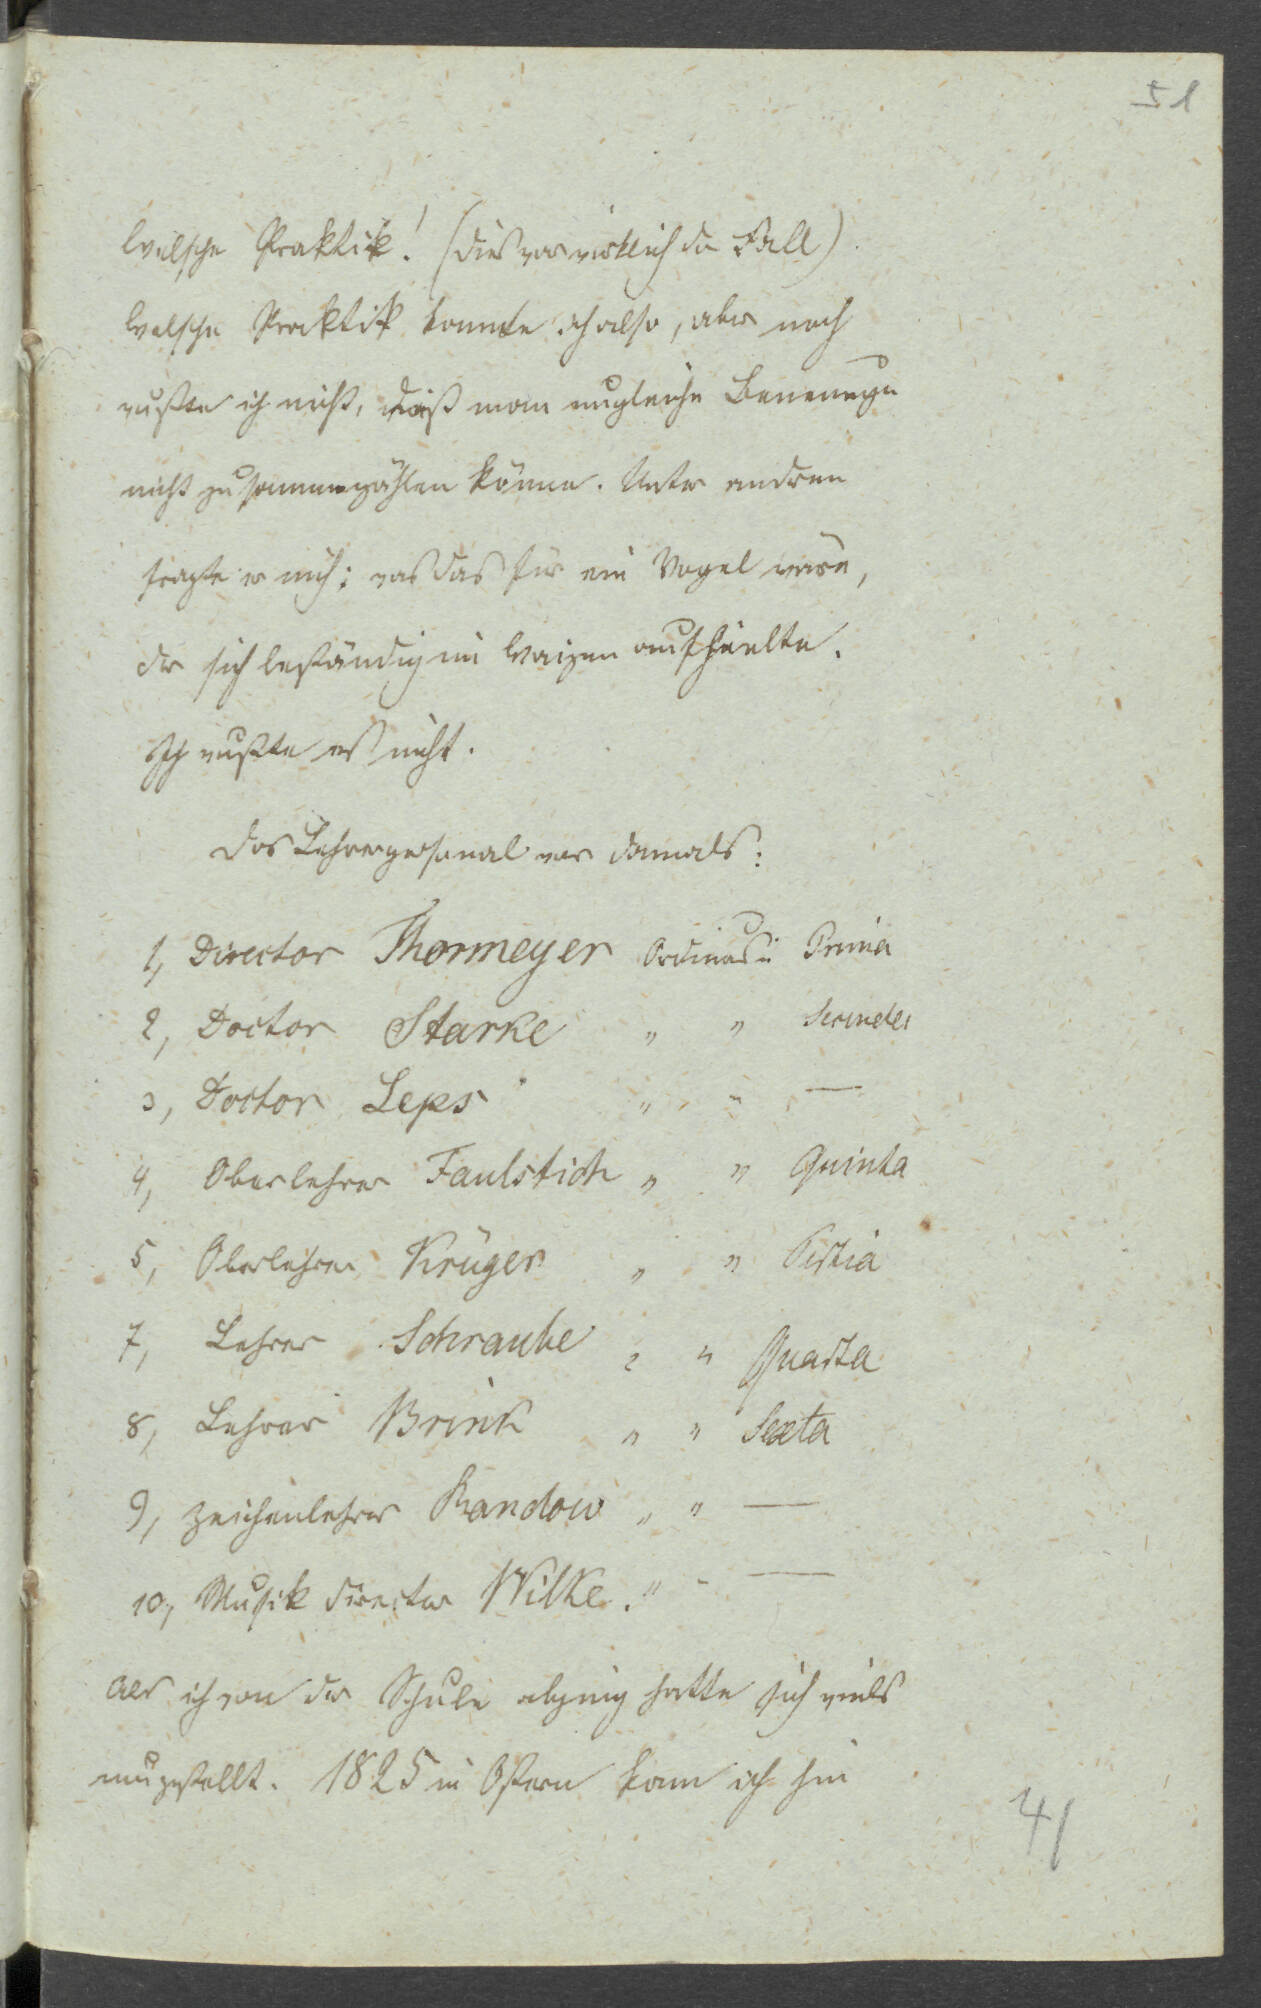 51
Welsche Praktik! (dies war wirklich der Fall)
Welsche Praktik konnte ich also, aber noch
wußte ich nicht, daß man ungleiche Benennungen
nicht zusammenzählen könne. Unter andren
fragte er mich: was das für ein Vogel wäre,
der sich beständig im Waizen aufhielte.
Ich wußte es nicht.
Das Lehrerpersonal war damals:
1, Director Thormeyer Ordinar: Prima
2, Doctor Starke " " Secunda
3, Doctor Leps " " —
4, Oberlehrer Faulstich " " Quinta
5, Oberlehrer Krüger " " Tertia
7, Lehrer Schraube " " Quarta
8, Lehrer Brink " " Sexta
9, Zeichenlehrer Kandow " " —
10, Musik director Wilke. " " —
Als ich von der Schule abging hatte sich viels
umgestellt. 1825 in Ostern kam ich hin
41